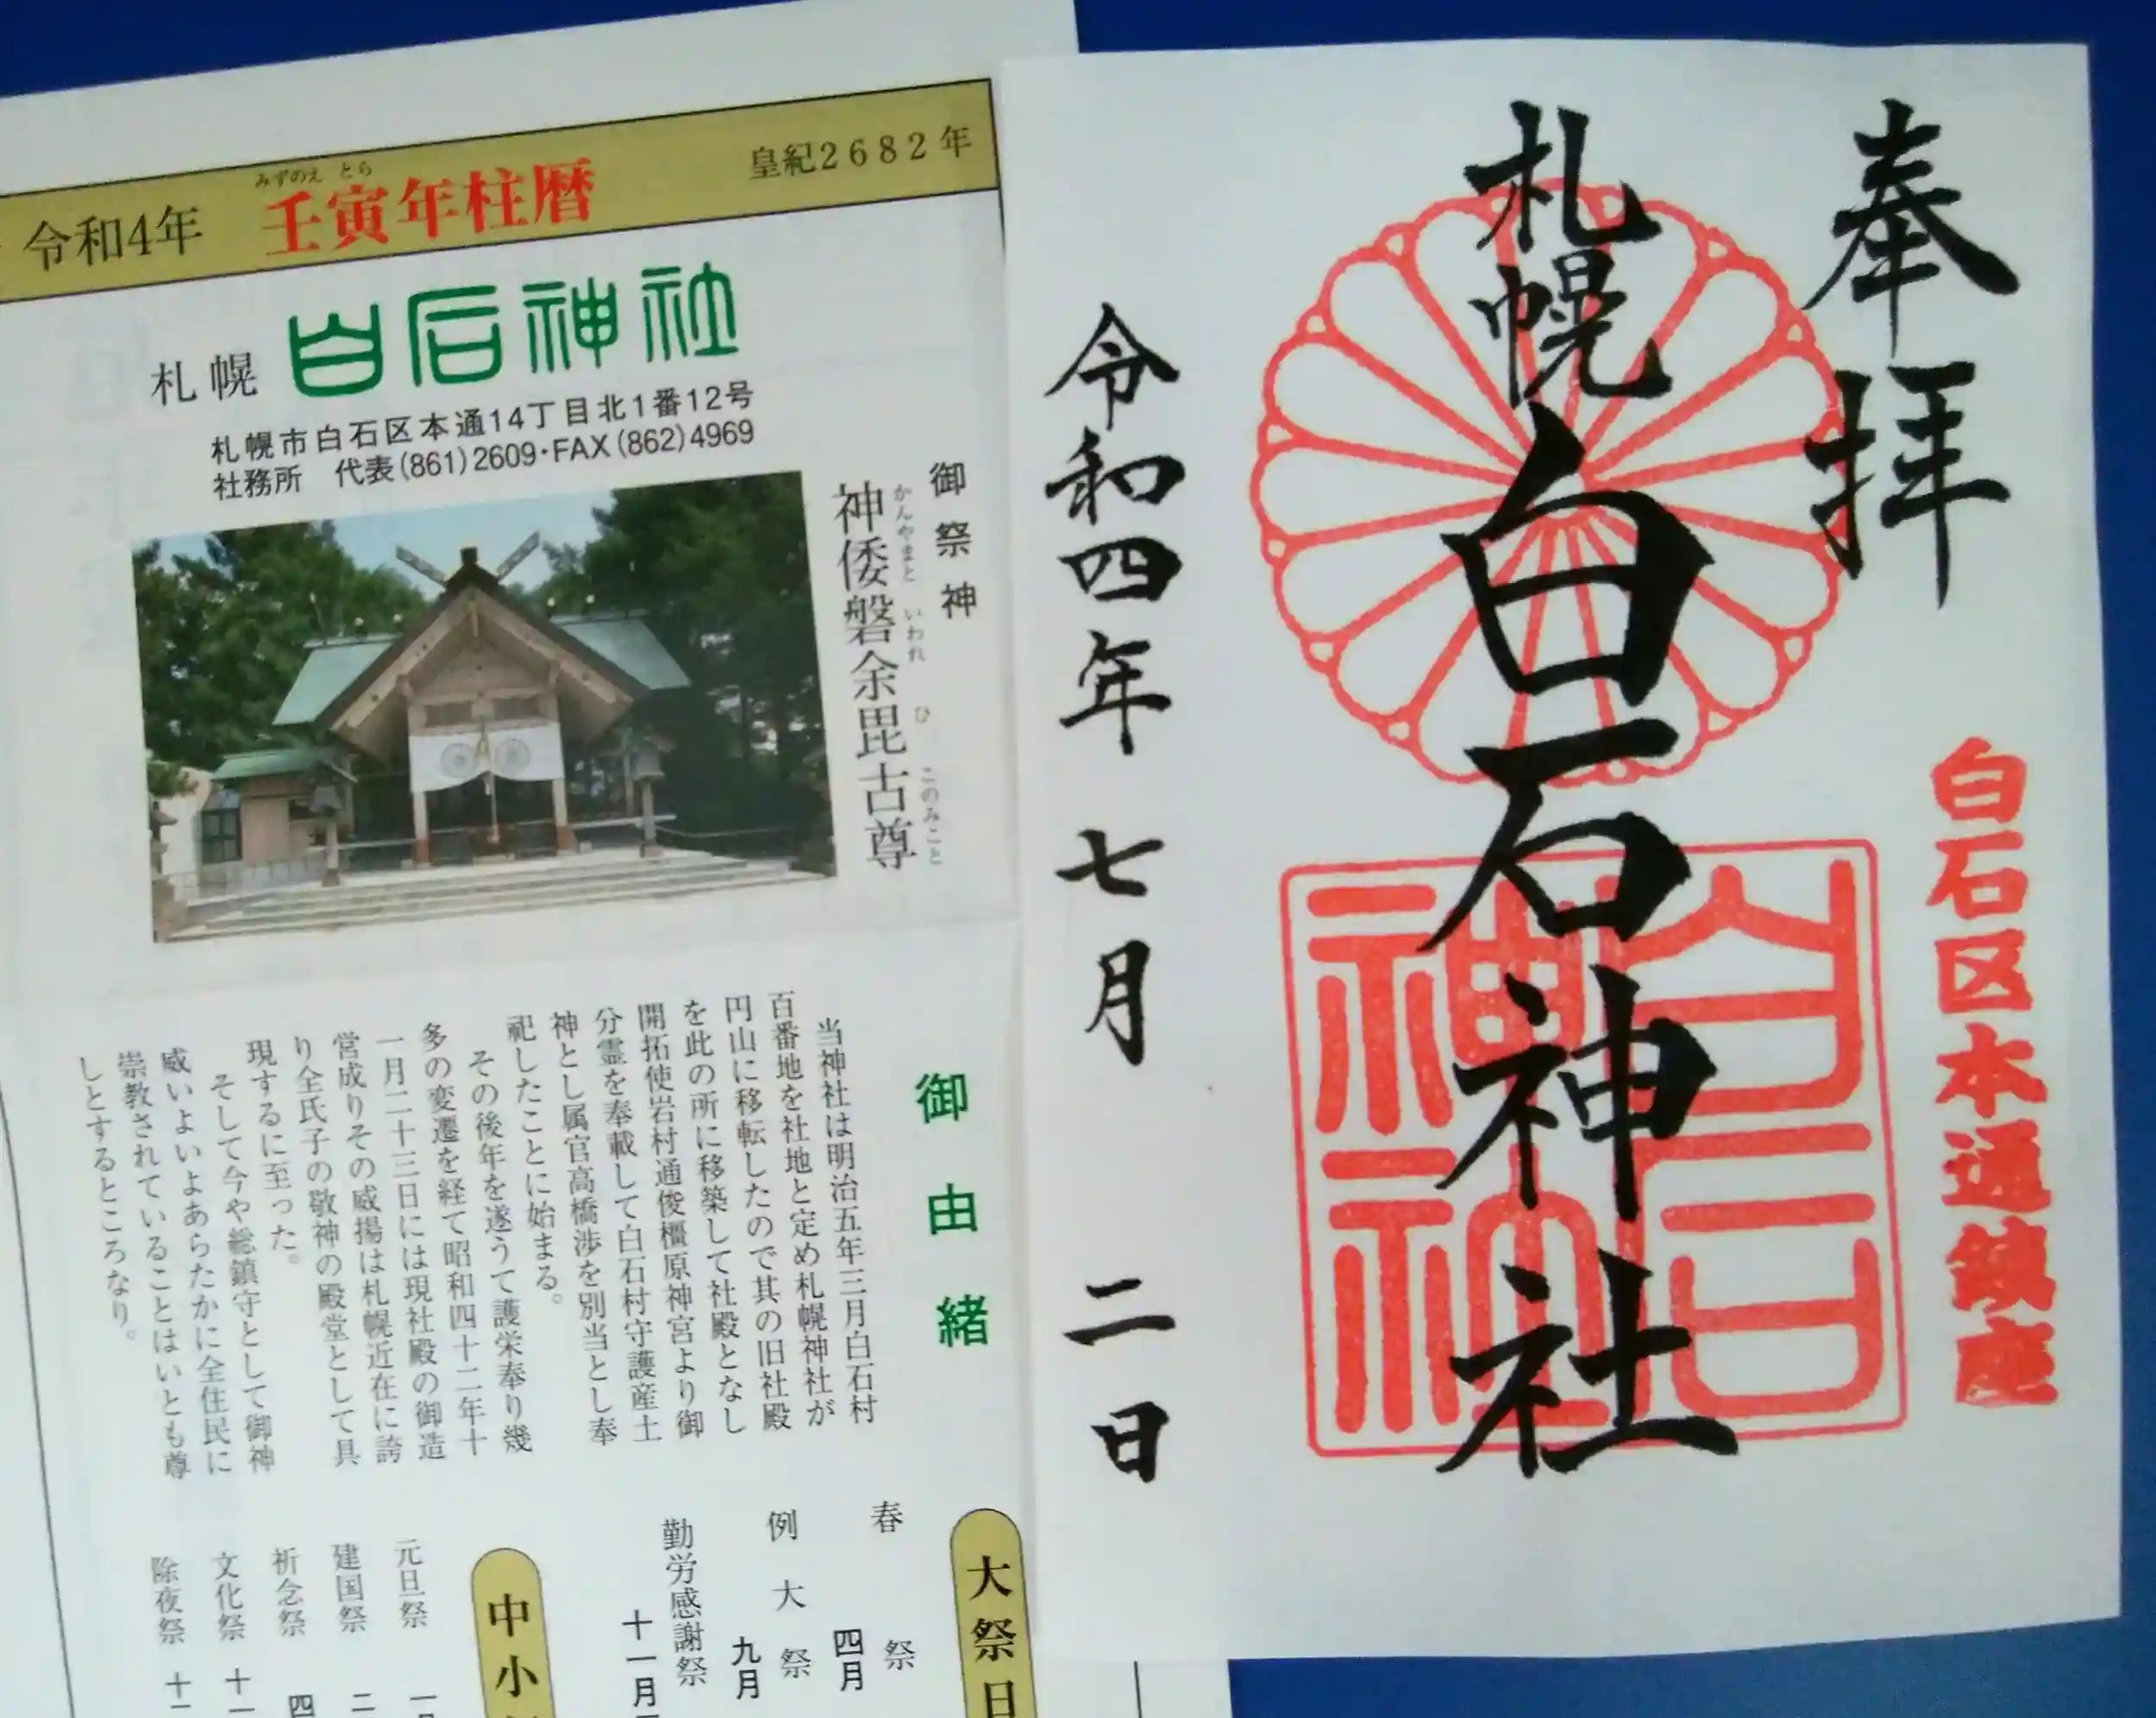 皇紀2682年
みずのえ とら
令和4年 壬寅年柱暦
札幌 白石神社
札幌市白石区本通14丁目北1番12号
社務所 代表(861)2609・FAX(862)4969
御祭神
かんやまと いわれ ひ このみこと
神倭磐余毘古尊
御由緒
当神社は明治五年三月白石村
百番地を社地と定め札幌神社が
円山に移転したので其の旧社殿
を此の所に移築して社殿となし
開拓使岩村通俊橿原神宮より御
分霊を奉載して白石村守護産土
神とし属官高橋渉を別当とし奉
祀したことに始まる。
その後年を遂うて護栄奉り幾
多の変遷を経て昭和四十二年十
一月二十三日には現社殿の御造
営成りその威揚は札幌近在に誇
り全氏子の敬神の殿堂として具
現するに至った。
そして今や総鎮守として御神
威いよいよあらたかに全住民に
崇教されていることはいとも尊
しとするところなり。
大祭日
春祭 四月
例大祭 九月
勤労感謝祭 十一月
中小
元旦祭 一月
建国祭 二
祈念祭 四
文化祭 十一
除夜祭 十
奉拝
白石区本通鎮座
札幌 白石神社
白石神社
令和四年 七月 二日